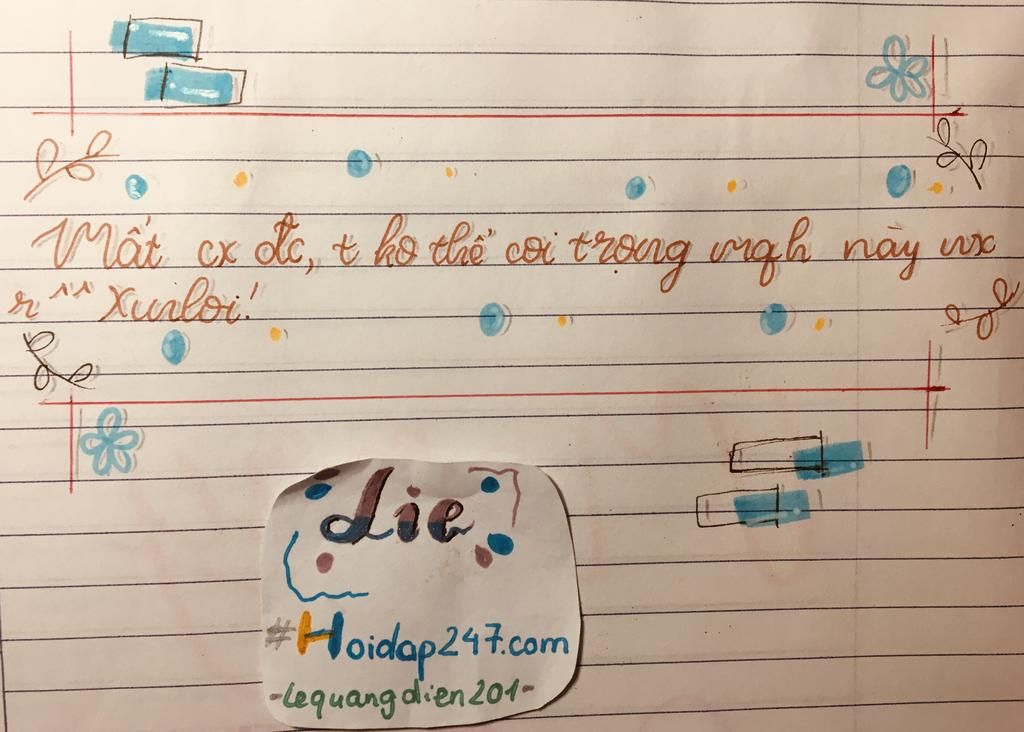 Mất cx đc, t ko thể coi trọng mqh này nx
r ^^ Xunloi!
die
#Hoidap247.com
-lequangdien201-